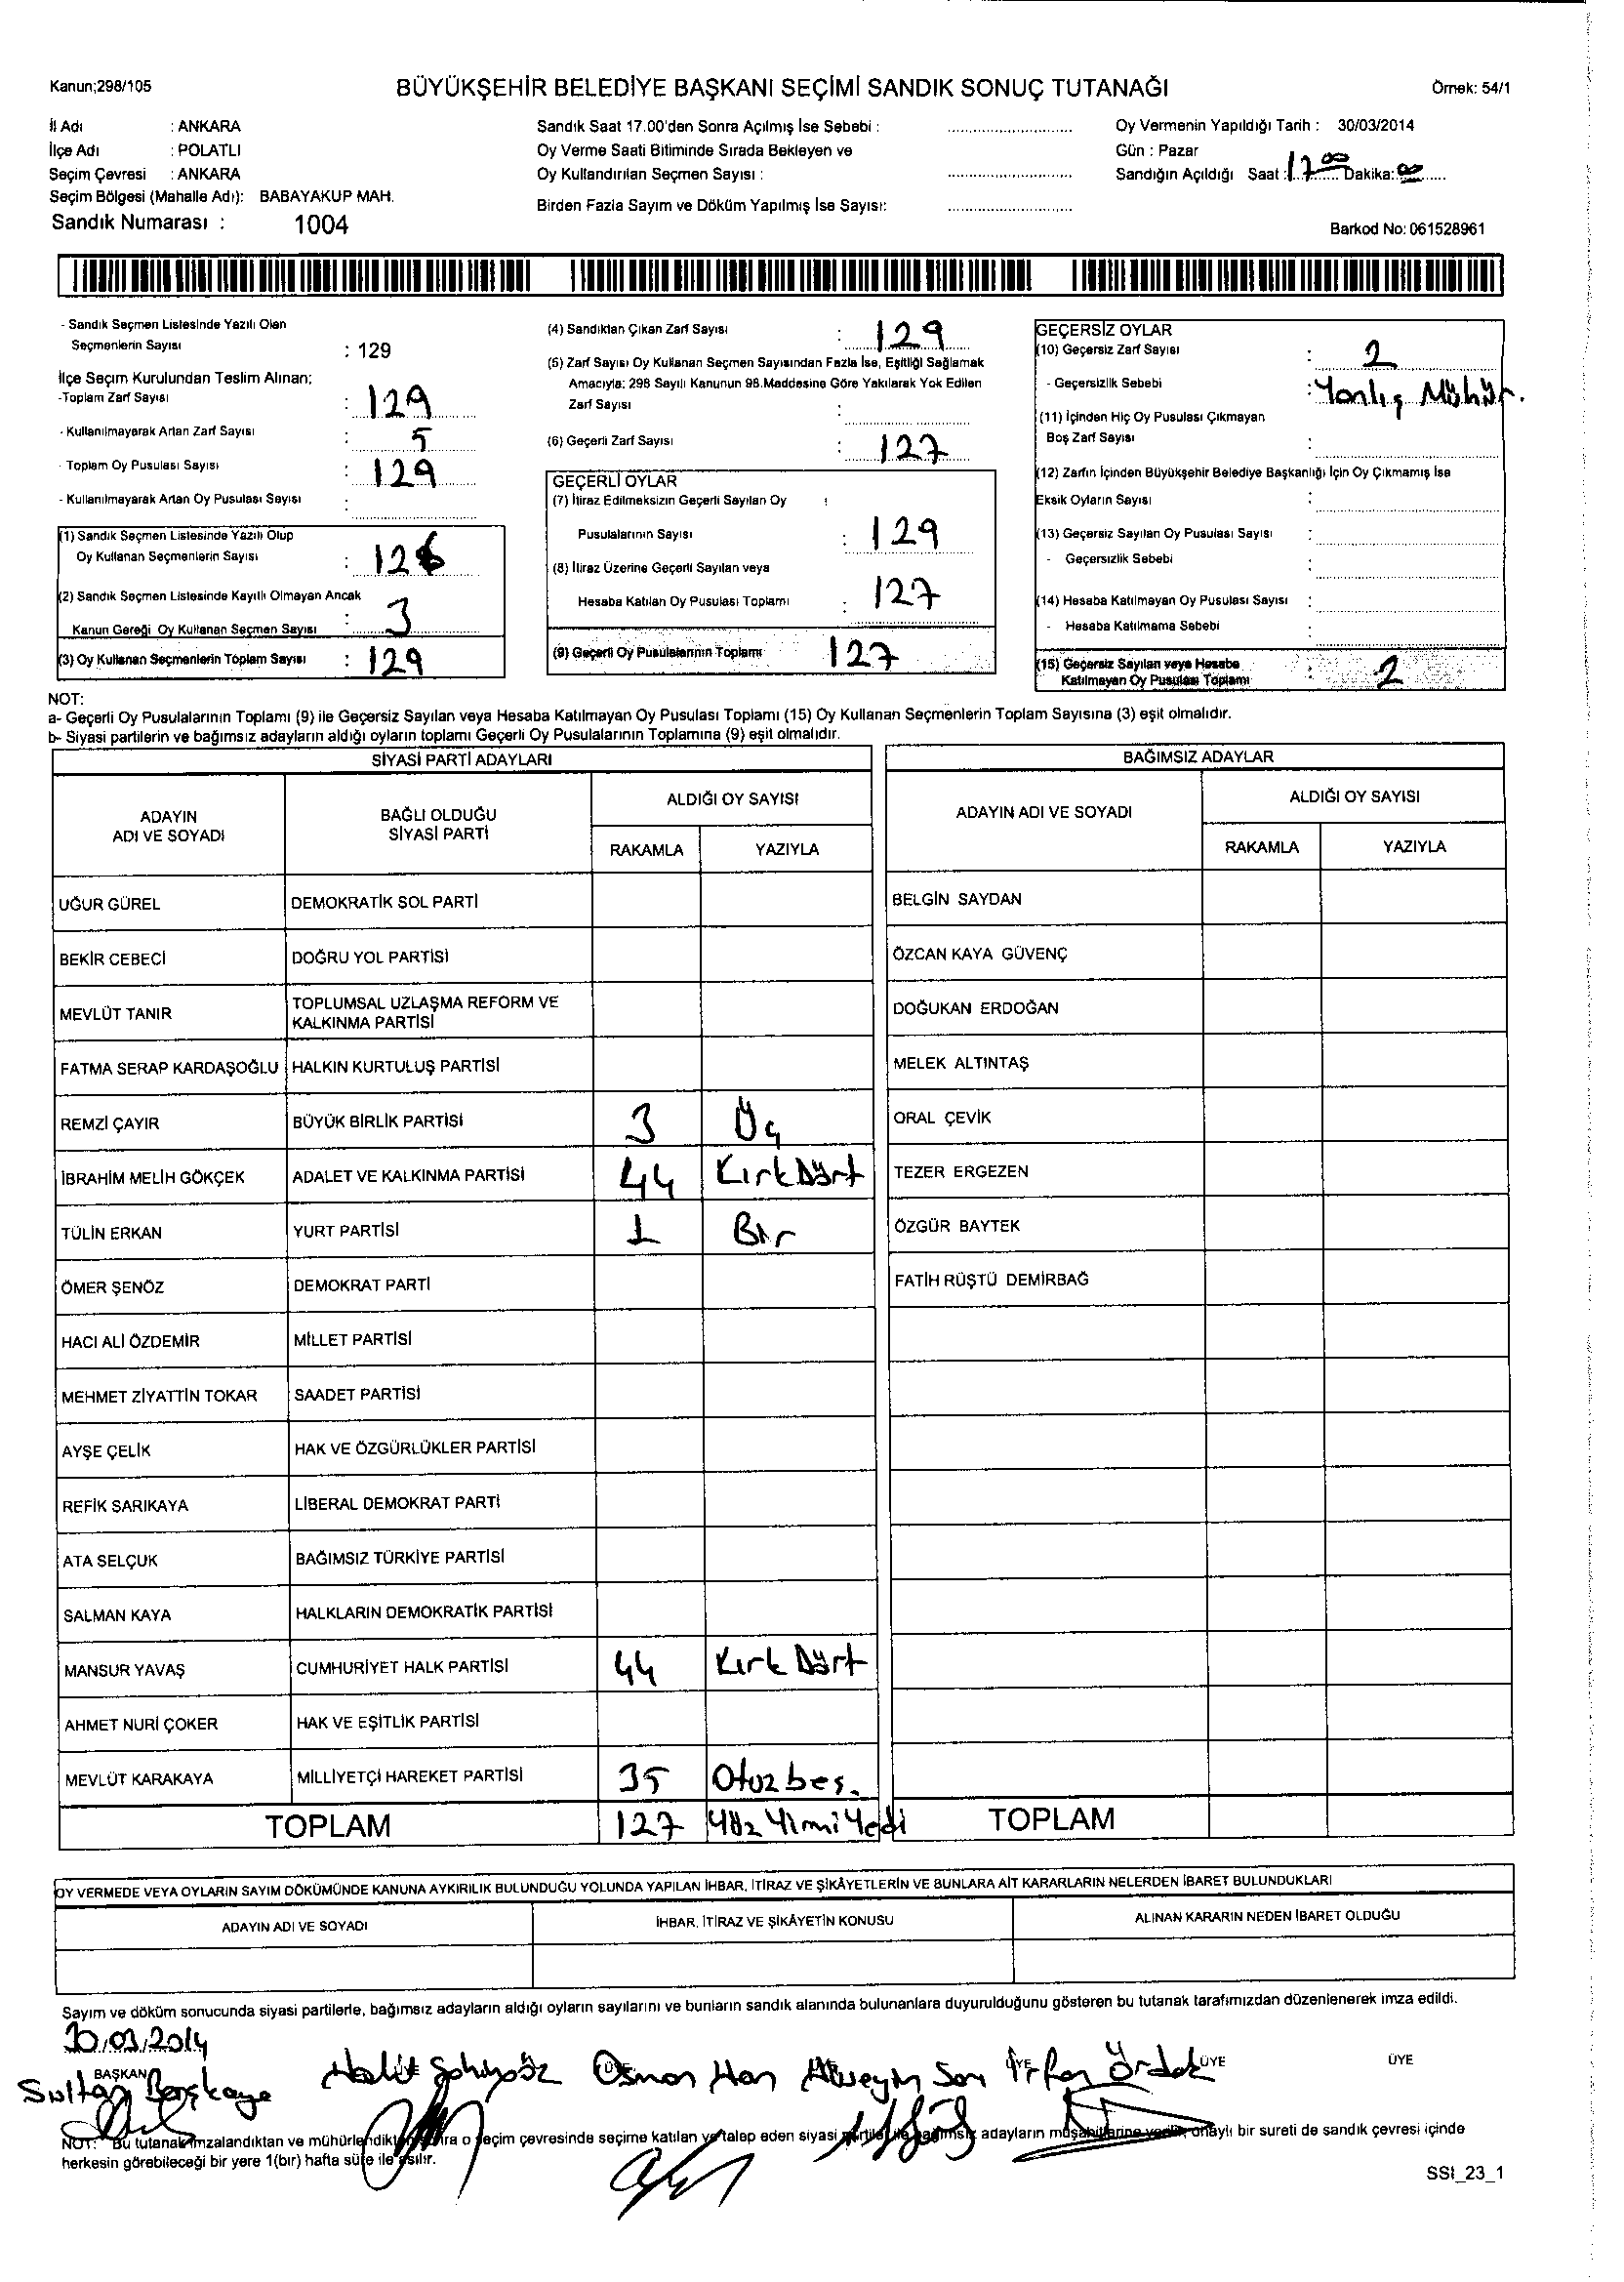 Kanun;298/105
BÜYÜKŞEHİR BELEDİYE BAŞKANI SEÇİMİ SANDIK SONUÇ TUTANAĞI
Örnek: 54/1
İl Adı : ANKARA
İlçe Adı : POLATLI
Seçim Çevresi : ANKARA
Seçim Bölgesi (Mahalle Adı): BABAYAKUP MAH.
Sandık Numarası : 1004
Sandık Saat 17.00'den Sonra Açılmış İse Sebebi :
Oy Verme Saati Bitiminde Sırada Bekleyen ve
Oy Kullandırılan Seçmen Sayısı :
Birden Fazla Sayım ve Döküm Yapılmış İse Sayısı:
Oy Vermenin Yapıldığı Tarih : 30/03/2014
Gün : Pazar
Sandığın Açıldığı Saat : 17 00 Dakika: 00
Barkod No: 061528961
- Sandık Seçmen Listesinde Yazılı Olan
Seçmenlerin Sayısı : 129
İlçe Seçim Kurulundan Teslim Alınan;
-Toplam Zarf Sayısı : 129
- Kullanılmayarak Artan Zarf Sayısı : 5
- Toplam Oy Pusulası Sayısı : 129
- Kullanılmayarak Artan Oy Pusulası Sayısı :
(1) Sandık Seçmen Listesinde Yazılı Olup
Oy Kullanan Seçmenlerin Sayısı : 126
(2) Sandık Seçmen Listesinde Kayıtlı Olmayan Ancak
Kanun Gereği Oy Kullanan Seçmen Sayısı : 3
(3) Oy Kullanan Seçmenlerin Toplam Sayısı : 129
(4) Sandıktan Çıkan Zarf Sayısı : 129
(5) Zarf Sayısı Oy Kullanan Seçmen Sayısından Fazla İse, Eşitliği Sağlamak
Amacıyla; 298 Sayılı Kanunun 98.Maddesine Göre Yakılarak Yok Edilen
Zarf Sayısı :
(6) Geçerli Zarf Sayısı : 127
GEÇERLİ OYLAR
(7) İtiraz Edilmeksizin Geçerli Sayılan Oy :
Pusulalarının Sayısı : 129
(8) İtiraz Üzerine Geçerli Sayılan veya
Hesaba Katılan Oy Pusulası Toplamı : 127
(9) Geçerli Oy Pusulalarının Toplamı 127
GEÇERSİZ OYLAR
(10) Geçersiz Zarf Sayısı : 2
- Geçersizlik Sebebi : Yanlış Mühür.
(11) İçinden Hiç Oy Pusulası Çıkmayan
Boş Zarf Sayısı :
(12) Zarfın İçinden Büyükşehir Belediye Başkanlığı İçin Oy Çıkmamış İse
Eksik Oyların Sayısı :
(13) Geçersiz Sayılan Oy Pusulası Sayısı :
- Geçersizlik Sebebi :
(14) Hesaba Katılmayan Oy Pusulası Sayısı :
- Hesaba Katılmama Sebebi :
(15) Geçersiz Sayılan veya Hesaba
Katılmayan Oy Pusulası Toplamı : 2
NOT:
a- Geçerli Oy Pusulalarının Toplamı (9) ile Geçersiz Sayılan veya Hesaba Katılmayan Oy Pusulası Toplamı (15) Oy Kullanan Seçmenlerin Toplam Sayısına (3) eşit olmalıdır.
b- Siyasi partilerin ve bağımsız adayların aldığı oyların toplamı Geçerli Oy Pusulalarının Toplamına (9) eşit olmalıdır.
SİYASİ PARTİ ADAYLARI
ADAYIN ADI VE SOYADI
BAĞLI OLDUĞU SİYASİ PARTİ
ALDIĞI OY SAYISI
RAKAMLA YAZIYLA
UĞUR GÜREL DEMOKRATİK SOL PARTİ
BEKİR CEBECİ DOĞRU YOL PARTİSİ
MEVLÜT TANIR TOPLUMSAL UZLAŞMA REFORM VE
KALKINMA PARTİSİ
FATMA SERAP KARDAŞOĞLU HALKIN KURTULUŞ PARTİSİ
REMZİ ÇAYIR BÜYÜK BİRLİK PARTİSİ 3 Üç
İBRAHİM MELİH GÖKÇEK ADALET VE KALKINMA PARTİSİ 44 KırkDört
TÜLİN ERKAN YURT PARTİSİ 1 Bir
ÖMER ŞENÖZ DEMOKRAT PARTİ
HACI ALİ ÖZDEMİR MİLLET PARTİSİ
MEHMET ZİYATTİN TOKAR SAADET PARTİSİ
AYŞE ÇELİK HAK VE ÖZGÜRLÜKLER PARTİSİ
REFİK SARIKAYA LİBERAL DEMOKRAT PARTİ
ATA SELÇUK BAĞIMSIZ TÜRKİYE PARTİSİ
SALMAN KAYA HALKLARIN DEMOKRATİK PARTİSİ
MANSUR YAVAŞ CUMHURİYET HALK PARTİSİ 44 Kırk Dört
AHMET NURİ ÇOKER HAK VE EŞİTLİK PARTİSİ
MEVLÜT KARAKAYA MİLLİYETÇİ HAREKET PARTİSİ 35 Otuz beş.
TOPLAM 127 Yüz Yirmi Yedi
BAĞIMSIZ ADAYLAR
ADAYIN ADI VE SOYADI
ALDIĞI OY SAYISI
RAKAMLA YAZIYLA
BELGİN SAYDAN
ÖZCAN KAYA GÜVENÇ
DOĞUKAN ERDOĞAN
MELEK ALTINTAŞ
ORAL ÇEVİK
TEZER ERGEZEN
ÖZGÜR BAYTEK
FATİH RÜŞTÜ DEMİRBAĞ
TOPLAM
OY VERMEDE VEYA OYLARIN SAYIM DÖKÜMÜNDE KANUNA AYKIRILIK BULUNDUĞU YOLUNDA YAPILAN İHBAR, İTİRAZ VE ŞİKÂYETLERİN VE BUNLARA AİT KARARLARIN NELERDEN İBARET BULUNDUKLARI
ADAYIN ADI VE SOYADI İHBAR, İTİRAZ VE ŞİKÂYETİN KONUSU ALINAN KARARIN NEDEN İBARET OLDUĞU
Sayım ve döküm sonucunda siyasi partilerle, bağımsız adayların aldığı oyların sayılarını ve bunların sandık alanında bulunanlara duyurulduğunu gösteren bu tutanak tarafımızdan düzenlenerek imza edildi.
30.03.2014
BAŞKAN ÜYE ÜYE ÜYE ÜYE
Sultan Halit Osman Han Hüseyin İrfan Ördek
NOT: Bu tutanak imzalandıktan ve mühürlendikten sonra o seçim çevresinde seçime katılan ve talep eden siyasi partiler ile bağımsız adayların müşahitlerine verilir, onaylı bir sureti de sandık çevresi içinde
herkesin görebileceği bir yere 1(bir) hafta süre ile asılır.
SSI_23_1